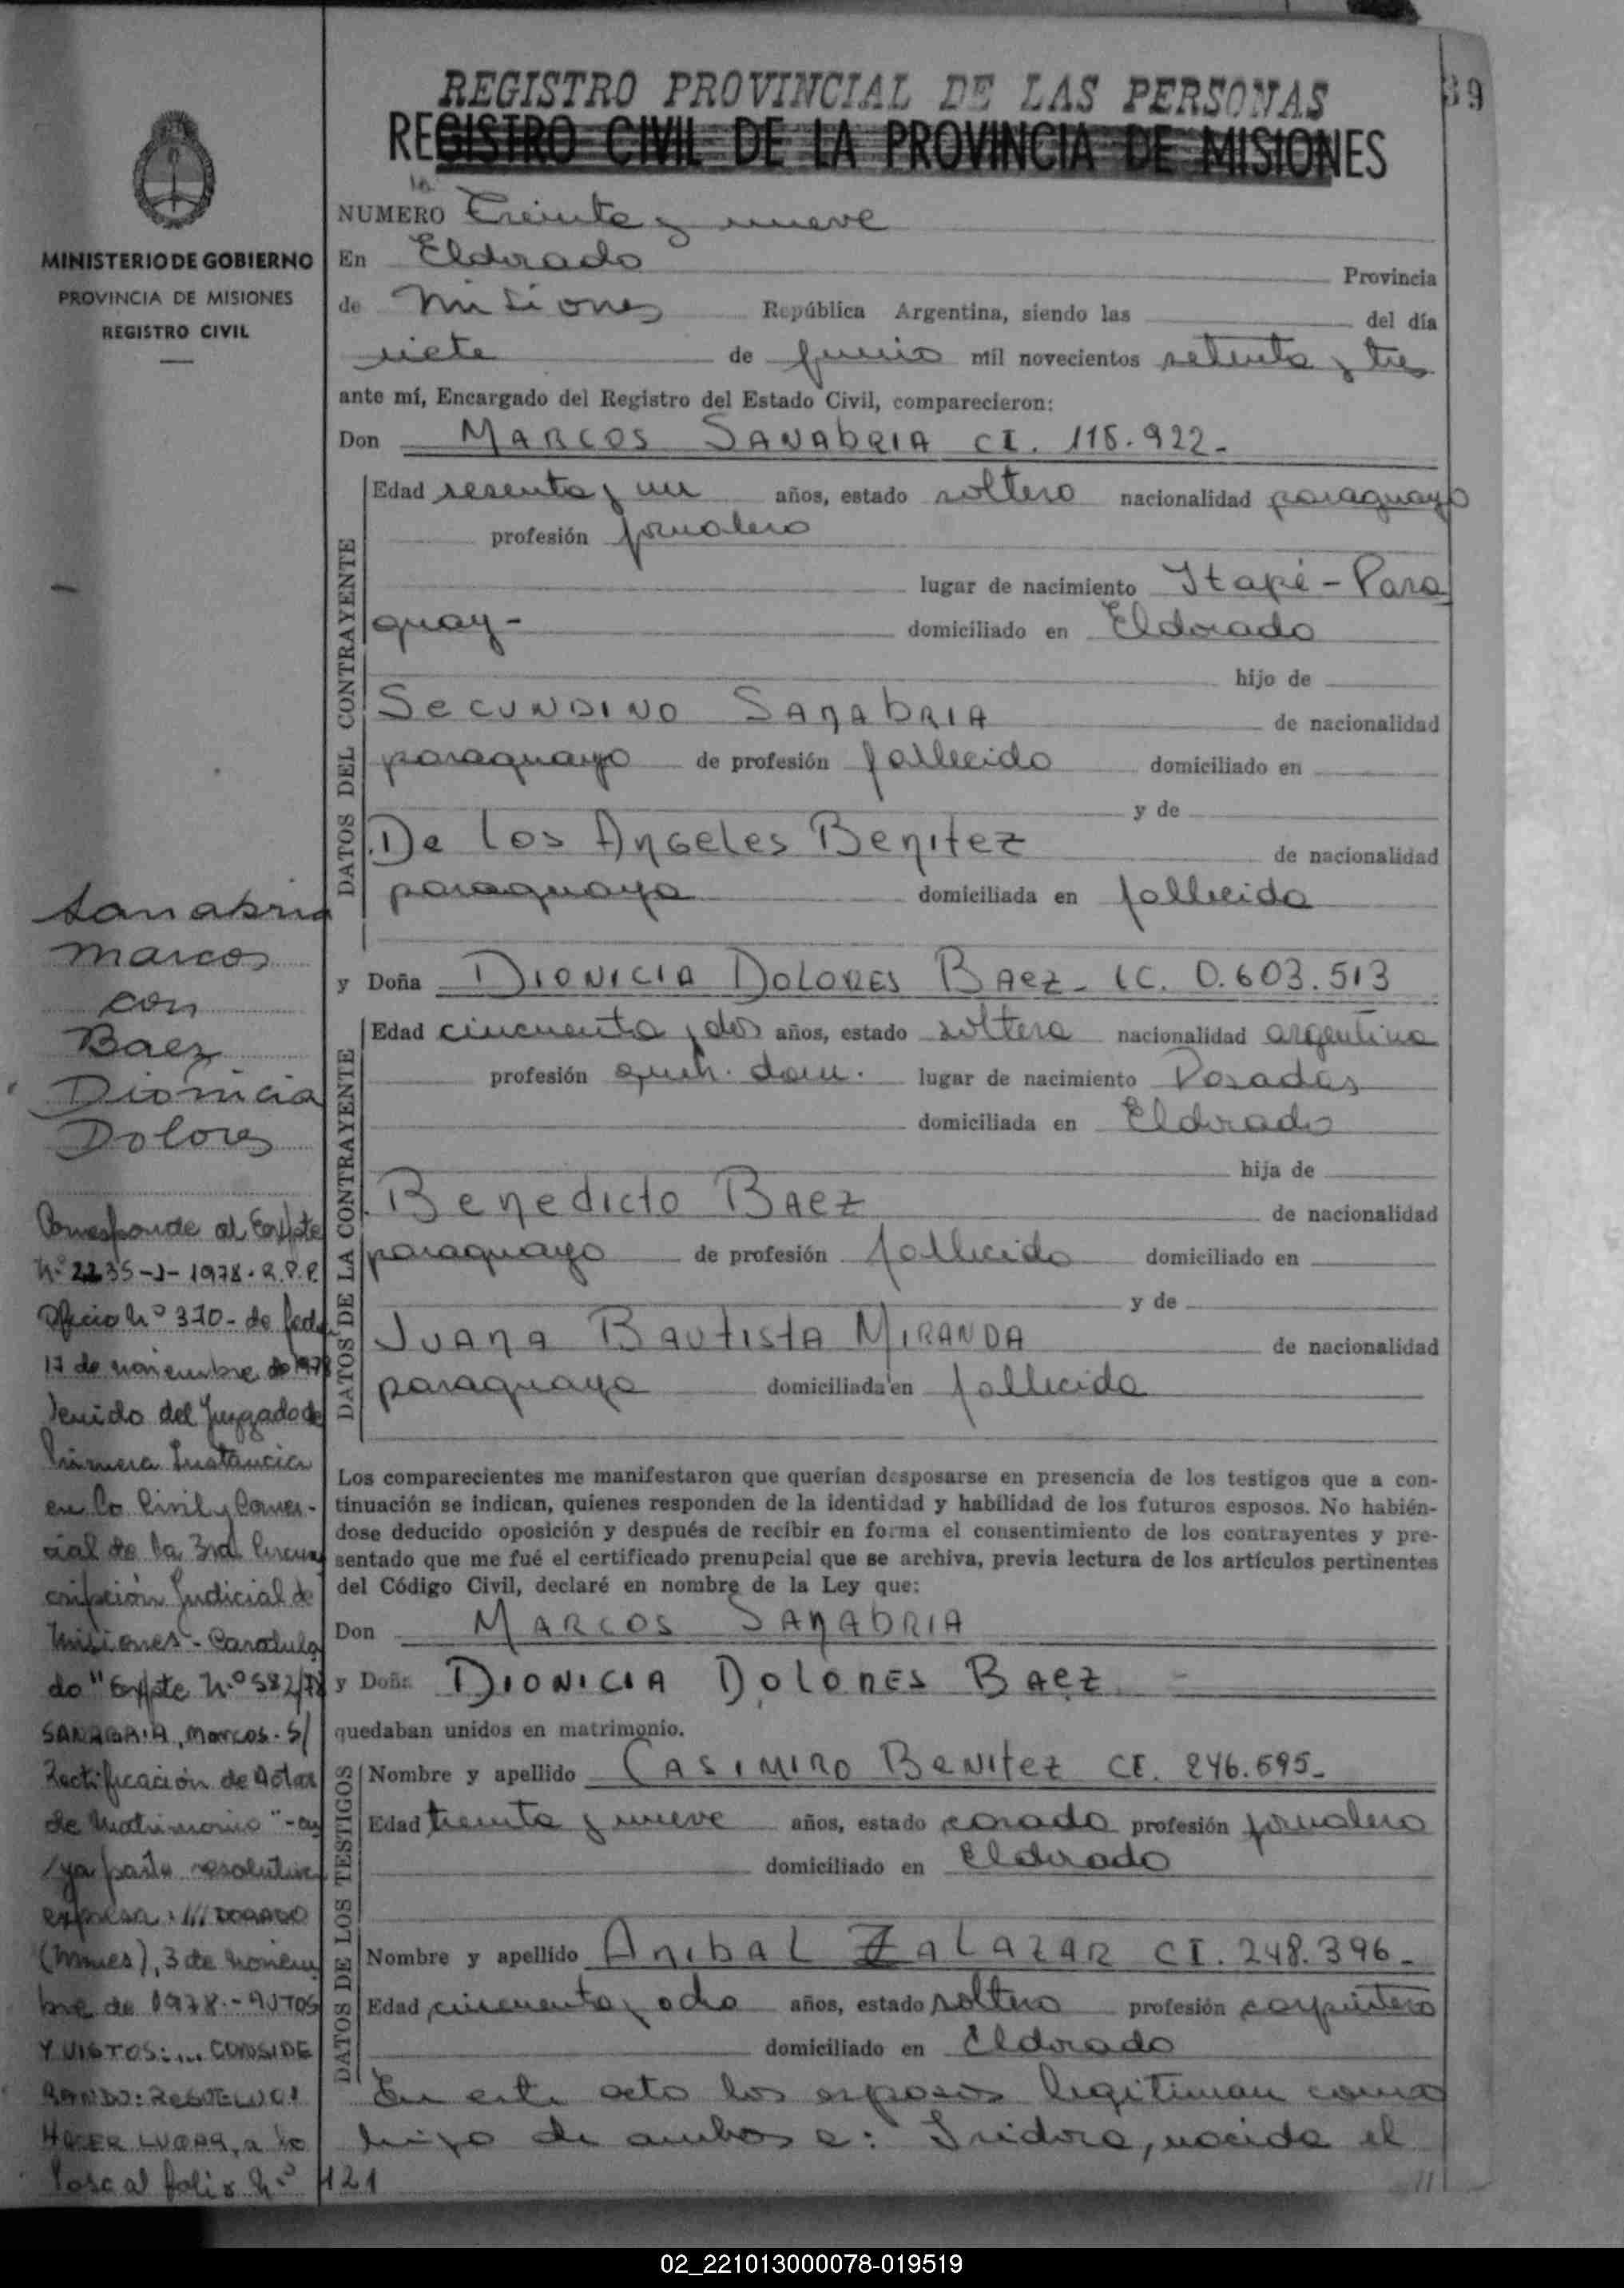 REGISTRO PROVINCIAL DE LAS PERSONAS
39
REGISTRO CIVIL DE LA PROVINCIA DE MISIONES
MINISTERIO DE GOBIERNO
PROVINCIA DE MISIONES
REGISTRO CIVIL
NUMERO Treinta y nueve
En Eldorado Provincia
de Misiones República Argentina, siendo las del día
siete de junio mil novecientos setenta y tres
ante mí, Encargado del Registro del Estado Civil, comparecieron:
Don MARCOS SANAbRIA CI. 118.922-
DATOS DEL CONTRAYENTE
Edad sesenta y un años, estado soltero nacionalidad paraguayo
profesión jornalero
lugar de nacimiento Itapé - Para
guay - domiciliado en Eldorado
hijo de
SeCUNDINO SANAbRIA de nacionalidad
paraguayo de profesión fallecido domiciliado en
y de
De los ANGeles BeNitez de nacionalidad
paraguaya domiciliada en fallecida
y Doña DIONICIA DOLORES BAez - LC. 0.603.513
DATOS DE LA CONTRAYENTE
Edad cincuenta y dos años, estado soltera nacionalidad argentina
profesión queh. dom. lugar de nacimiento Posadas
domiciliada en Eldorado
hija de
Benedicto BAez de nacionalidad
paraguayo de profesión fallecido domiciliado en
y de
JUANA BAUtistA MIRANDA de nacionalidad
paraguaya domiciliada en fallecida
Los comparecientes me manifestaron que querían desposarse en presencia de los testigos que a con-
tinuación se indican, quienes responden de la identidad y habilidad de los futuros esposos. No habién-
dose deducido oposición y después de recibir en forma el consentimiento de los contrayentes y pre-
sentado que me fué el certificado prenupcial que se archiva, previa lectura de los artículos pertinentes
del Código Civil, declaré en nombre de la Ley que:
Don MARCOS SANAbRIA
y Doña DIONICIA DOLORES BAez
quedaban unidos en matrimonio.
DATOS DE LOS TESTIGOS
Nombre y apellido CASIMIRO BeNItez CI. 246.595-
Edad treinta y nueve años, estado casado profesión jornalero
domiciliado en Eldorado
Nombre y apellido ANIbAL ZALAZAR CI. 248.396-
Edad cincuenta y ocho años, estado soltero profesión carpintero
domiciliado en Eldorado
En este acto los esposos legitiman como
hijo de ambos a: Isidora, nacida el
Sanabria
Marcos
con
Baez
Dionicia
Dolores
Corresponde al Expte
Nº 2235-J-1978-R.P.P.
Oficio Nº 310- de fecha
17 de noviembre de 1978
Venido del Juzgado de
Primera Instancia
en lo Civil y Comer-
cial de la 3ra Circuns
cripción Judicial de
Misiones - Caratula
do "Expte Nº 582/78
SANABRIA, Marcos - S/
Rectificación de Actas
de Matrimonio" - cu
/ya parte resolutiva
expresa: ///DORADO
(Mnes), 3 de noviem
bre de 1978.- AUTOS
Y VISTOS:... CONSIDE
RANDO: RESUELVO:
HACER LUGAR, a lo
Pasa al folio Nº 121
02_221013000078-019519